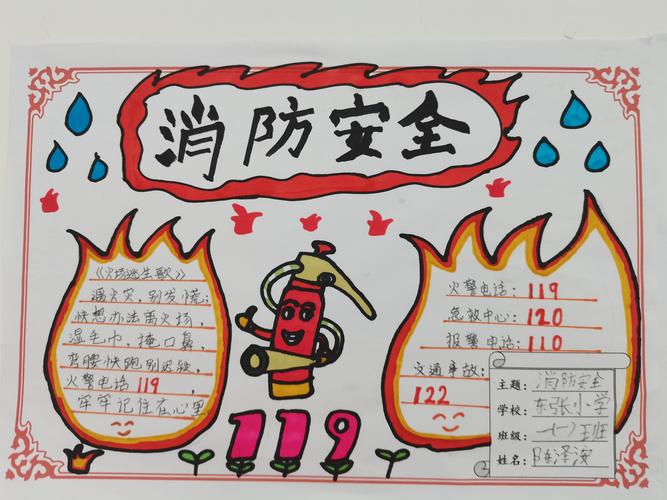 消防安全
《火场逃生歌》
遇火灾，别发慌；
快想办法离火场，
湿毛巾，掩口鼻，
弯腰快跑别迟疑，
火警电话119，
牢牢记住在心里
火警电话：119
急救中心：120
报警电话：110
交通事故：
122
119
主题：消防安全
学校：东张小学
班级：一(一)班
姓名：陈泽